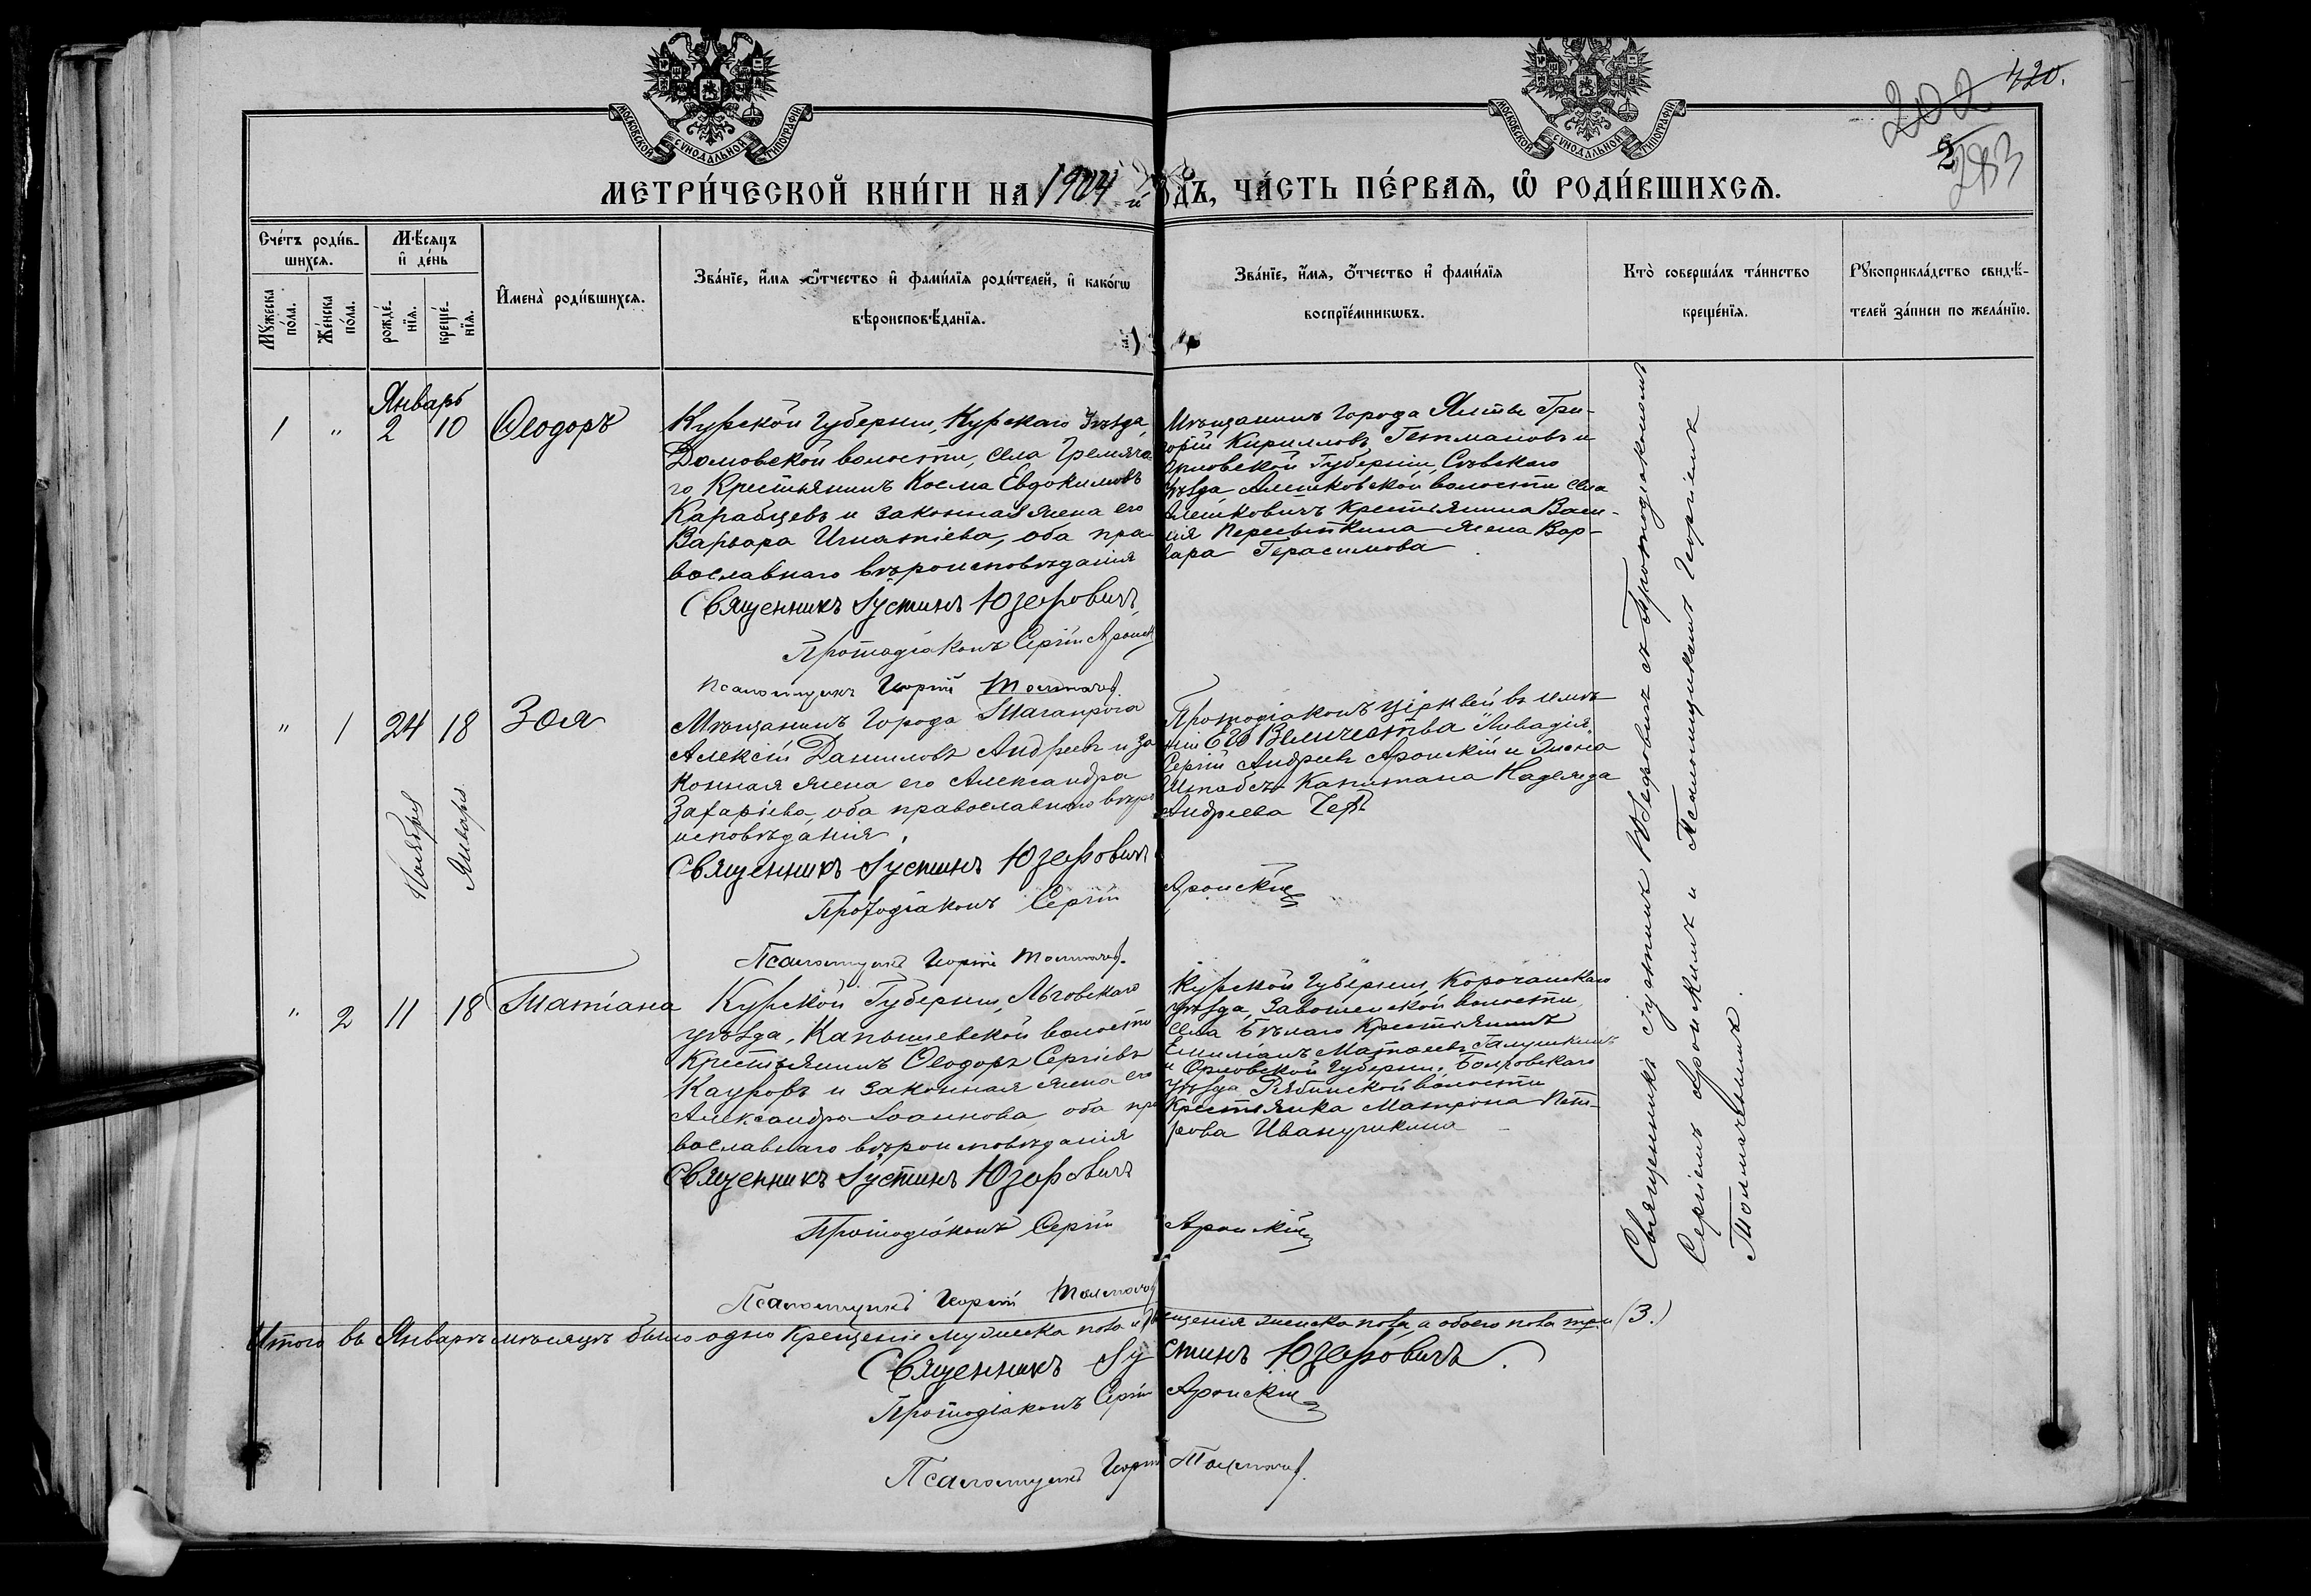 МОСКОВСКОЙ СѴНОДАЛЬНОЙ ТИПОГРАФІИ
МОСКОВСКОЙ СѴНОДАЛЬНОЙ ТИПОГРАФІИ
420.
202
2
203
МЕТРИ́ЧЕСКОЙ КНИ́ГИ НА 1904 й го́дъ, ЧА́СТЬ ПЕ́РВАѦ, Ѡ҆ РОДИ́ВШИХСѦ.
Сче́тъ роди́в-
шихсѧ.
М҆ѣсѧцъ
и҆ де́нь
Мꙋ́жеска
по́ла.
Же́нска
по́ла.
рожде́-
нїѧ.
креще́-
нїѧ.
И҆мена̀ роди́вшихсѧ.
Зва́нїе, и҆́мѧ ѻ҆́тчество и҆ фами́лїѧ роди́телей, и҆ како́гѡ
вѣроисповѣ́данїѧ.
Зва́нїе, и҆́мѧ, ѻ҆́тчество и҆ фами́лїѧ
воспрїе́мникѡвъ.
Кто̀ соверша́лъ та́инство
креще́нїѧ.
Рꙋкоприкла́дство свидѣ́-
телей за́писи по жела́нїю.
Январь
1 " 2 10 Ѳеодоръ
Курской Губерніи, Курскаго Уѣзда,
Домовской волости, села Гремяча-
го Крестьянинъ Косма Евдокимовъ
Карабцевъ и законная жена его
Варвара Игнатіева, оба пра-
вославнаго вѣроисповѣданія
Священникъ Іустинъ Юзефовичъ
Протодіаконъ Сергій Аронск
Псаломщикъ Георгій Толмачев.
Мѣщанинъ города Ялты Гри-
горій Кирилловъ Гетмановъ и
Орловской Губерніи, Сѣвскаго
уѣзда Алешковской волости села
Алешковичъ Крестьянина Васи-
лія Пересыпкина жена Вар-
вара Герасимова
" 1 24 18 Зоя
Ноября
Января
Мѣщанинъ города Таганрога
Алексій Даниловъ Андреевъ и за-
конная жена его Александра
Захаріева, оба православнаго вѣро-
исповѣданія.
Священникъ Іустинъ Юзефовичъ
Протодіаконъ Сергій Аронскій
Псаломщикъ Георгій Толмачев.
Протодіаконъ церквей въ имѣ-
ніи Его Величества "Ливадія"
Сергій Андреевъ Аронскій и жена
Штабсъ-Капитана Надежда
Андреева
" 2 11 18 Татіана
Курской Губерніи, Льговскаго
уѣзда, Капышевской волости
Крестьянинъ Ѳеодоръ Сергіевъ
Кауровъ и законная жена его
Александра Іоаннова, оба пра-
вославнаго вѣроисповѣданія
Священникъ Іустинъ Юзефовичъ
Протодіаконъ Сергій Аронскій
Псаломщикъ Георгій Толмачев
Курской Губерніи, Корочанскаго
уѣзда, волости,
села Бѣлаго Крестьянинъ
Емиліанъ Матѳеевъ Галушкинъ
и Орловской Губерніи, Болховскаго
уѣзда Рябинской волости
Крестьянка Матрона Пет-
рова Иванушкина
Священникъ Іустинъ Юзефовичъ съ Протодіакономъ
Сергіемъ Аронскимъ и Псаломщикомъ Георгіемъ
Толмачевымъ.
Итого въ Январѣ мѣсяцѣ было одно крещеніе мужеска пола и крещенія женска пола, а обоего пола три (3.)
Священникъ Іустинъ Юзефовичъ.
Протодіаконъ Сергій Аронскій
Псаломщикъ Георгій Толмачев.